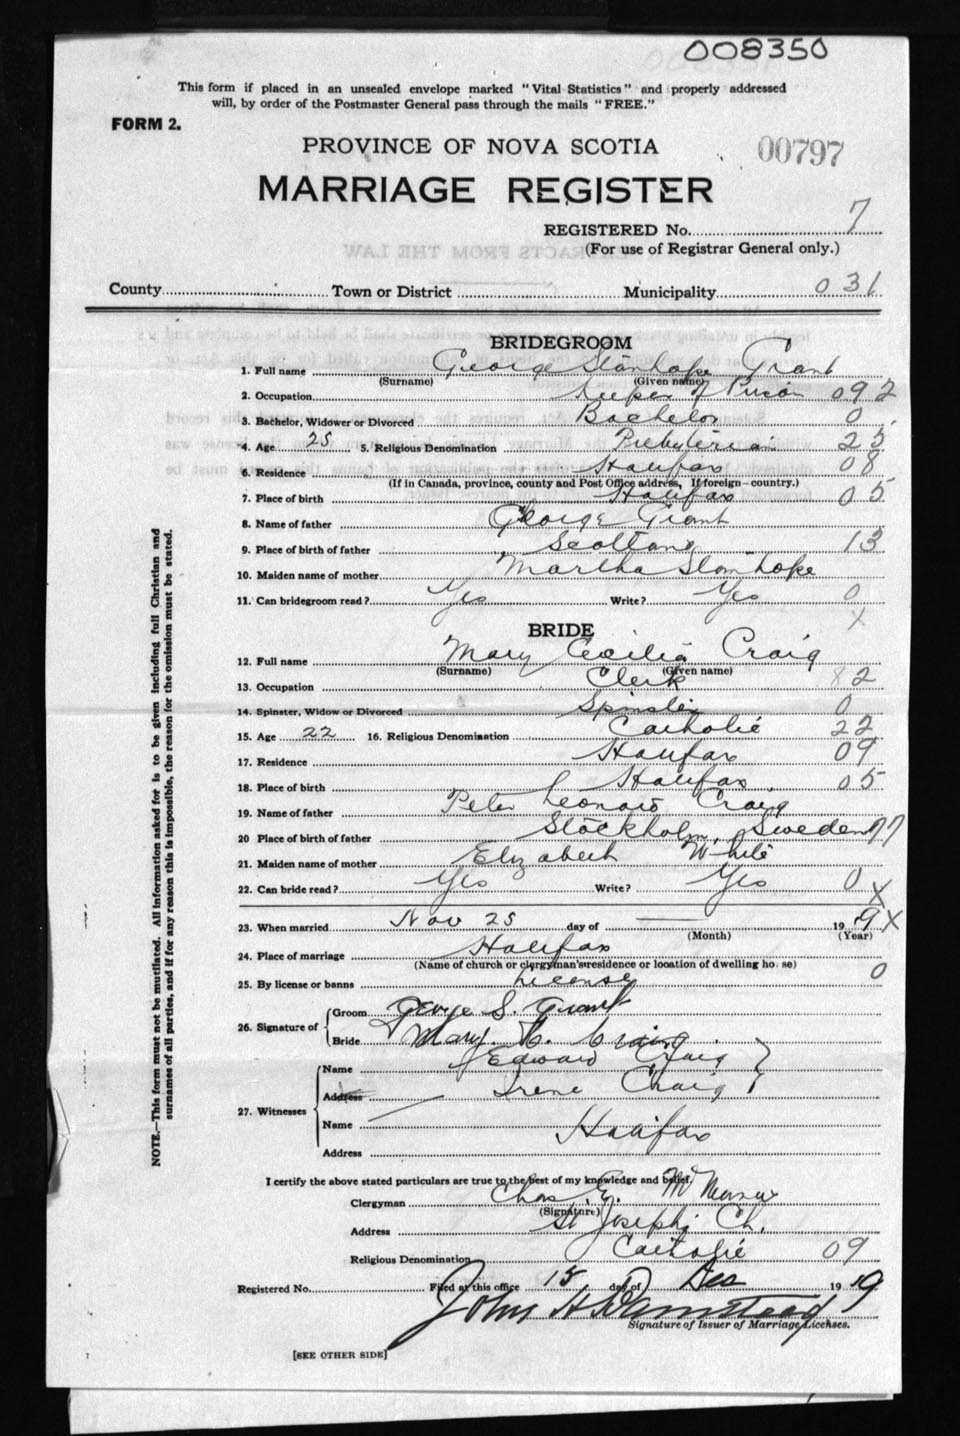 008350
This form if placed in an unsealed envelope marked "Vital Statistics" and properly addressed
will, by order of the Postmaster General pass through the mails "FREE."
FORM 2.
PROVINCE OF NOVA SCOTIA
00797
MARRIAGE REGISTER
REGISTERED No. 7
(For use of Registrar General only.)
County Town or District Municipality 031
BRIDEGROOM
1. Full name George Stanhope Grant
(Surname) (Given name)
2. Occupation keeper of Prison 092
3. Bachelor, Widower or Divorced Bachelor 0
4. Age 25 5. Religious Denomination Presbyterian 25
6. Residence Halifax 08
(If in Canada, province, county and Post Office address, If foreign - country.)
7. Place of birth Halifax 05
8. Name of father George Grant
9. Place of birth of father Scotland 13
10. Maiden name of mother Martha Stanhope
11. Can bridegroom read? Yes Write? Yes 0
X
BRIDE
12. Full name Mary Cecilia Craig
(Surname) (Given name)
13. Occupation Clerk 82
14. Spinster, Widow or Divorced Spinster 0
15. Age 22 16. Religious Denomination Catholic 22
17. Residence Halifax 09
18. Place of birth Halifax 05
19. Name of father Peter Leonard Craig
20 Place of birth of father Stockholm, Sweden 77
21. Maiden name of mother Elizabeth White
22. Can bride read? Yes Write? Yes 0
X
23. When married Nov 25 day of 19 19 X
(Month) (Year)
24. Place of marriage Halifax
(Name of church or clergyman's residence or location of dwelling house)
25. By license or banns License 0
26. Signature of Groom George S. Grant
Bride Mary C. Craig
27. Witnesses Name Edward Craig
Address Irene Craig
Name
Halifax
Address
I certify the above stated particulars are true to the best of my knowledge and belief.
Clergyman Chas. E.
(Signature)
Address St Joseph's Ch.
Religious Denomination Catholic 09
Registered No. Filed at this office 15 day of Dec 19 19
John H Barnstead
Signature of Issuer of Marriage Licenses.
[SEE OTHER SIDE]
NOTE.—This form must not be mutilated. All information asked for is to be given including full Christian and
surnames of all parties, and if for any reason this is impossible, the reason for the omission must be stated.